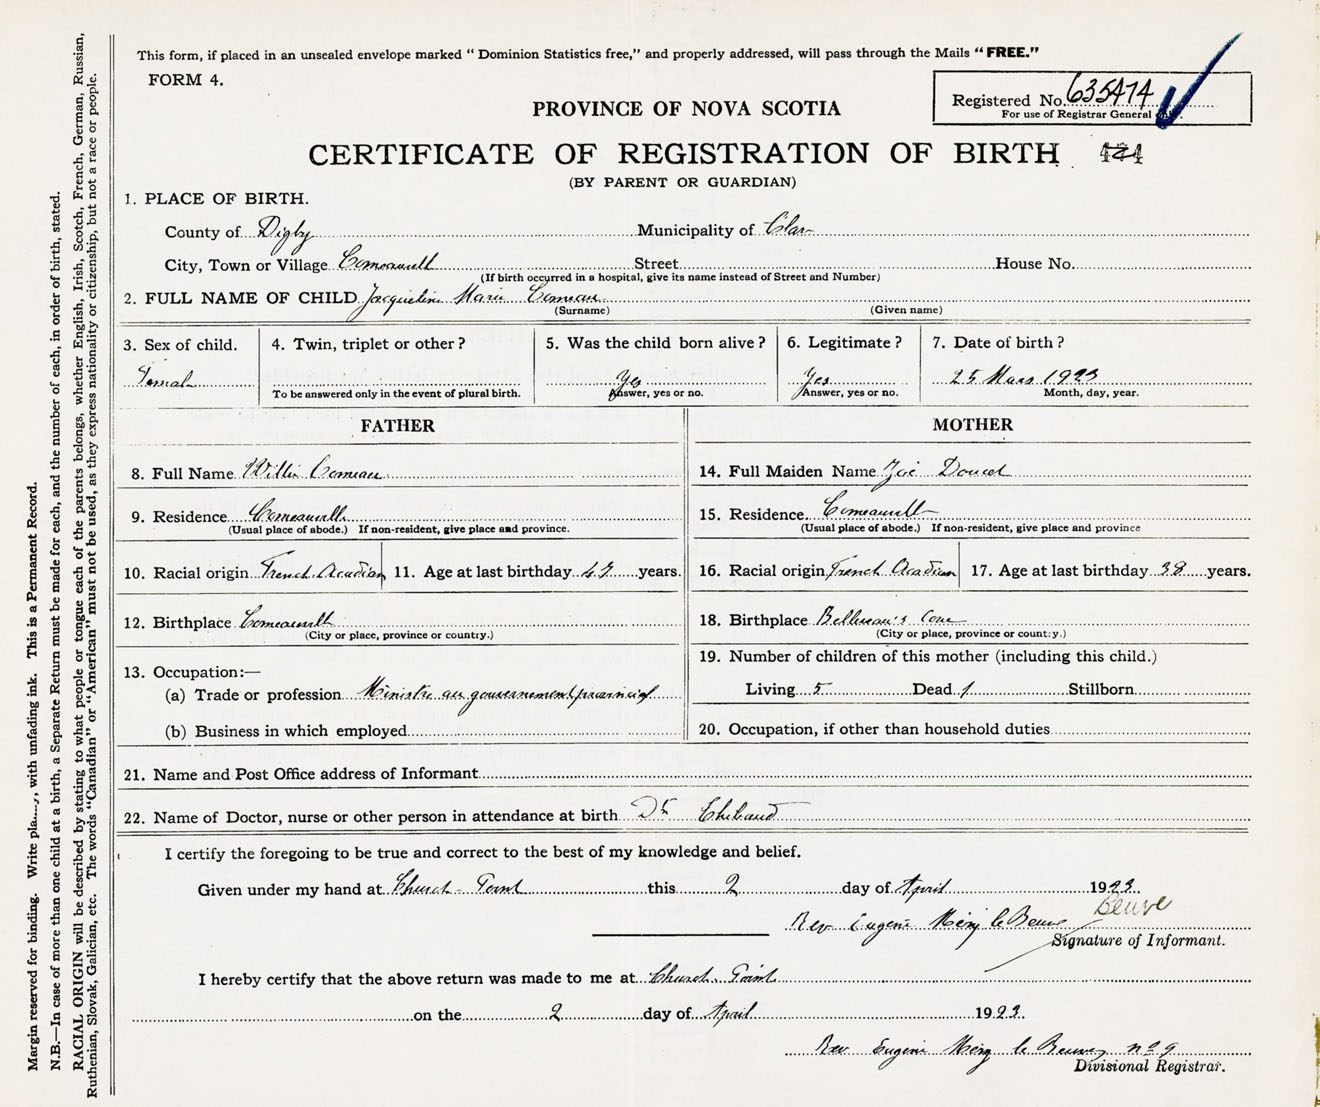 This form, if placed in an unsealed envelope marked " Dominion Statistics free," and properly addressed, will pass through the Mails "FREE."
FORM 4.
Registered No. 635474
For use of Registrar General
PROVINCE OF NOVA SCOTIA
CERTIFICATE OF REGISTRATION OF BIRTH
(BY PARENT OR GUARDIAN)
1. PLACE OF BIRTH.
County of Digby Municipality of Clare
City, Town or Village Comeauville Street House No.
(If birth occurred in a hospital, give its name instead of Street and Number)
2. FULL NAME OF CHILD Jacqueline Marie Comeau
(Surname) (Given name)
3. Sex of child. 4. Twin, triplet or other? 5. Was the child born alive? 6. Legitimate? 7. Date of birth?
Female Yes Yes 25 Mars 1923
To be answered only in the event of plural birth. Answer, yes or no. Answer, yes or no. Month, day, year.
FATHER
8. Full Name Willie Comeau
9. Residence Comeauville
(Usual place of abode.) If non-resident, give place and province.
10. Racial origin French Acadian 11. Age at last birthday 47 years.
12. Birthplace Comeauville
(City or place, province or country.)
13. Occupation:—
(a) Trade or profession Ministre au gouvernement provincial
(b) Business in which employed
MOTHER
14. Full Maiden Name Zoé Doucet
15. Residence Comeauville
(Usual place of abode.) If non-resident, give place and province
16. Racial origin French Acadian 17. Age at last birthday 38 years.
18. Birthplace Belliveau's Cove
(City or place, province or country.)
19. Number of children of this mother (including this child.)
Living 5 Dead 1 Stillborn
20. Occupation, if other than household duties
21. Name and Post Office address of Informant
22. Name of Doctor, nurse or other person in attendance at birth Dr
I certify the foregoing to be true and correct to the best of my knowledge and belief.
Given under my hand at Church Point this 2 day of April 1923
Beuve
Rev Eugene Mery le Beuve
Signature of Informant.
I hereby certify that the above return was made to me at Church Point
on the 2 day of April 1923.
Rev Eugene Mery le Beuve no 9
Divisional Registrar.
Margin reserved for binding. Write pla....., with unfading ink. This is a Permanent Record.
N.B.—In case of more than one child at a birth, a Separate Return must be made for each, and the number of each, in order of birth, stated.
RACIAL ORIGIN will be described by stating to what people or tongue each of the parents belongs, whether English, Irish, Scotch, French, German, Russian,
Ruthenian, Slovak, Galician, etc. The words "Canadian" or "American" must not be used, as they express nationality or citizenship, but not a race or people.